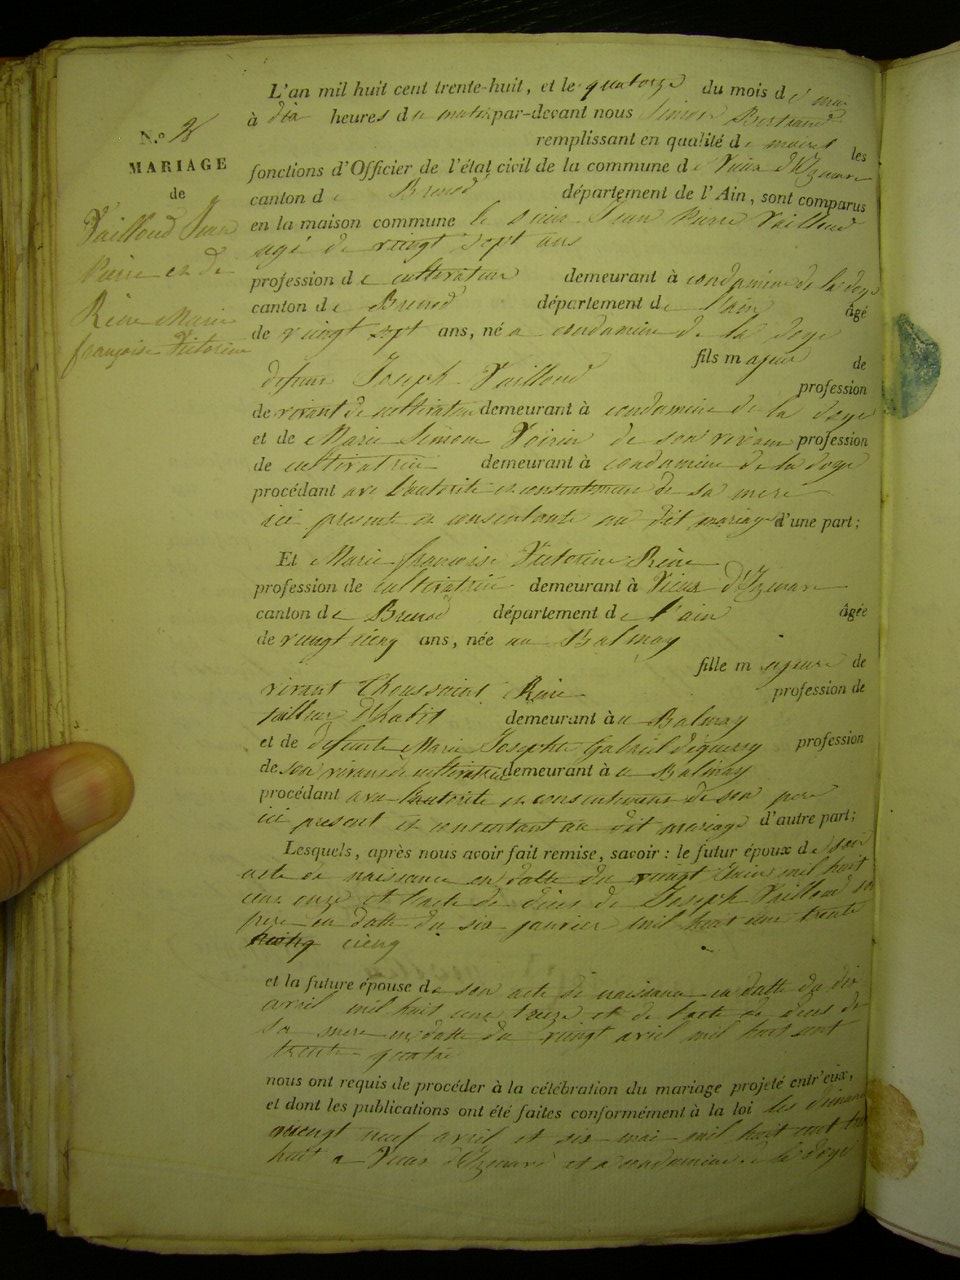 L'an mil huit cent trente-huit, et le quatorze du mois de mai
à dix heures du matin par-devant nous Simon Bertrand
remplissant en qualité de maire les
N.º 2
MARIAGE
de
Vailloud Jean
Pierre et de
Rêne Marie
françoise Victorine
fonctions d'Officier de l'état civil de la commune de Vieux d'Izenave
canton de Brenod département de l'Ain, sont comparus
en la maison commune le sieur Jean Pierre Vailloud
agé de vingt sept ans
profession de cultivateur demeurant à condamine de la doye
canton de Brenod département de l'ain âgé
de vingt sept ans, né a condamine de la doye
fils majeur de
defunt Joseph Vailloud profession
de vivant de cultivateur demeurant à condamine de la doye
et de Marie Simone Voirin de son vivant profession
de cultivatrice demeurant à condamine de la doye
procédant avec l'autorité et consentement de sa mere
ici present et consentante au dit mariage d'une part;
Et Marie françoise Victorine Rêne
profession de cultivatrice demeurant à Vieux d'Izenave
canton de Brenod département de l'ain âgée
de vingt cinq ans, née au Balmay
fille majeure de
vivant Thoussaint Rêne profession de
tailleur d'habit demeurant à au Balmay
et de defunte Marie Josephe Gabriel profession
de son vivant de cultivatrice demeurant à au Balmay
procédant avec l'autorité et consentement de son pere
ici present et consentant au dit mariage d'autre part;
Lesquels, après nous avoir fait remise, savoir: le futur époux de son
acte de naissance en datte du vingt mil huit
cent onze et l'acte de déces de Joseph Vailloud son
pere en datte du six janvier mil huit cent trente
cienq
et la future épouse de son acte de naissance en datte du dix
avril mil huit cent treize et de l'acte de déces de
sa mere en datte du vingt avril mil huit cent
trente quatre
nous ont requis de procéder à la célébration du mariage projeté entr'eux,
et dont les publications ont été faites conformément à la loi les dimanc
vingt neuf avril et six mai mil huit cent tre
huit a Vieux d'Izenave et a condamine de la doye